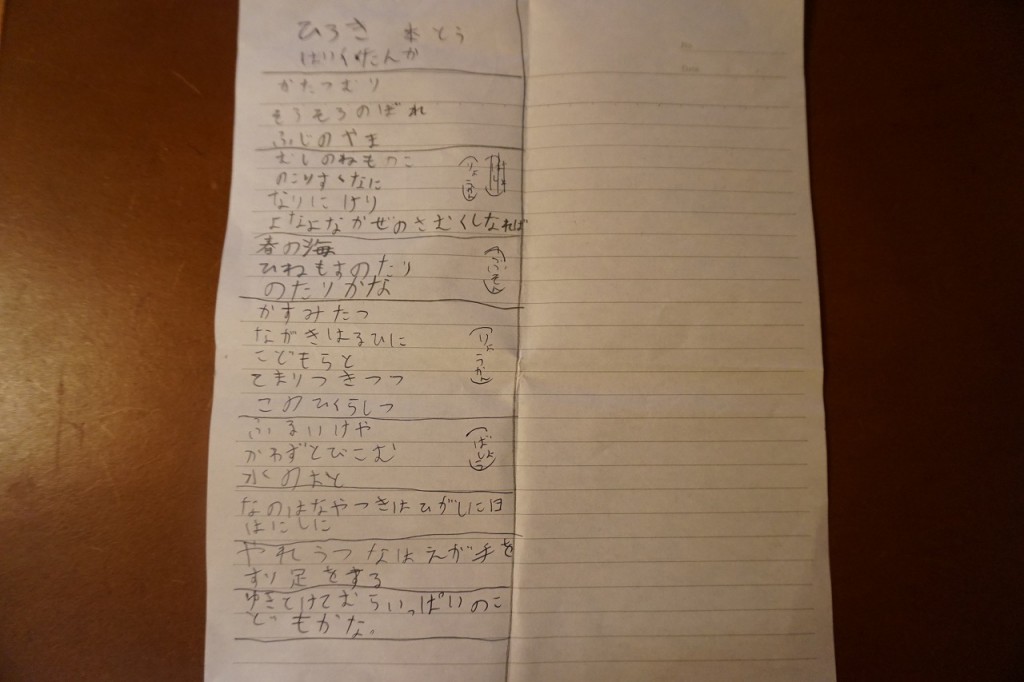 ひろき 本とう
はいくやたんか
かたつむり
そろそろのぼれ
ふじのやま
むしのねも
のこりすくなに
なりにけり
(りょうかん)
よなよなかぜのさむくしなれば
春の海
ひねもすのたり
のたりかな
(ぶそん)
かすみたつ
ながきはるひに
こどもらと
てまりつきつつ
このひくらしつ
(りょうかん)
ふるいけや
かわずとびこむ
水のおと
(ばしょう)
なのはなやつきはひがしに日
はにしに
やれうつなはえが手を
すり足をする
ゆきとけてむらいっぱいのこ
どもかな。